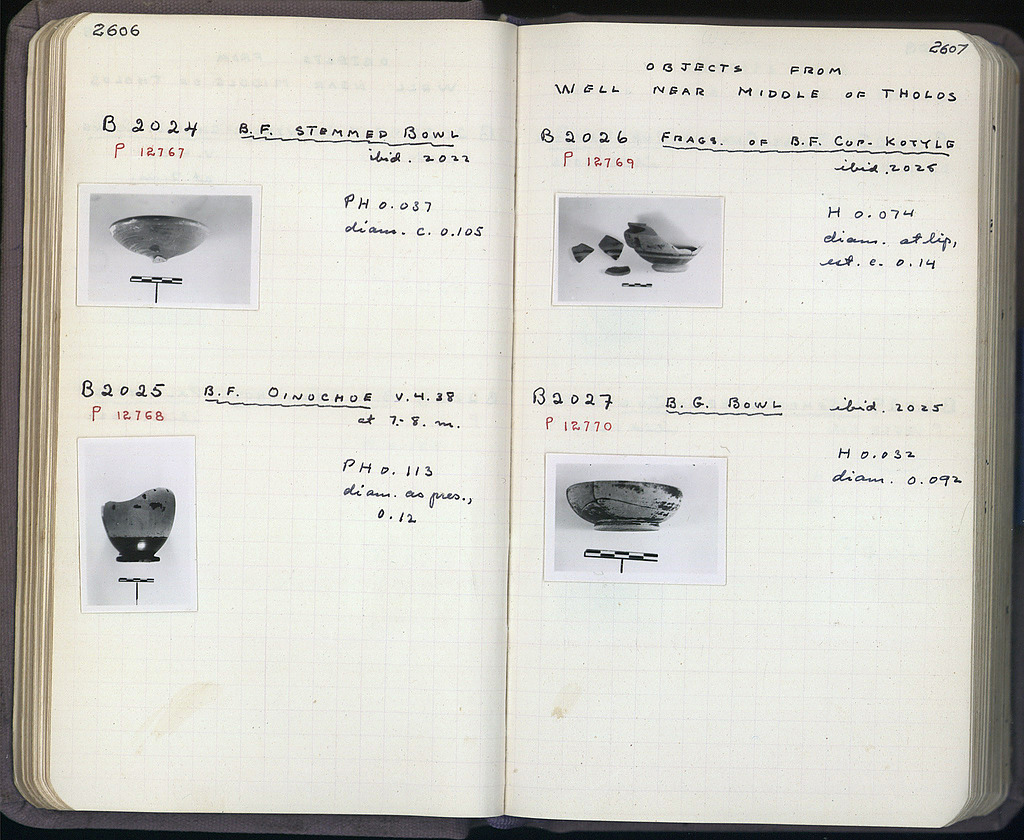 2606
B 2024 B.F. STEMMED BOWL
P 12767 ibid. 2022
PH 0.037
diam. c. 0.105
B 2025 B.F. OINOCHOE V.4.38
P 12768 at 7.-8. m.
PH 0.113
diam. as pres.,
0.12
2607
OBJECTS FROM
WELL NEAR MIDDLE OF THOLOS
B 2026 FRAGS. OF B.F. CUP-KOTYLE
P 12769 ibid. 2025
H 0.074
diam. at lip,
est. c. 0.14
B 2027 B.G. BOWL ibid. 2025
P 12770
H 0.032
diam. 0.092